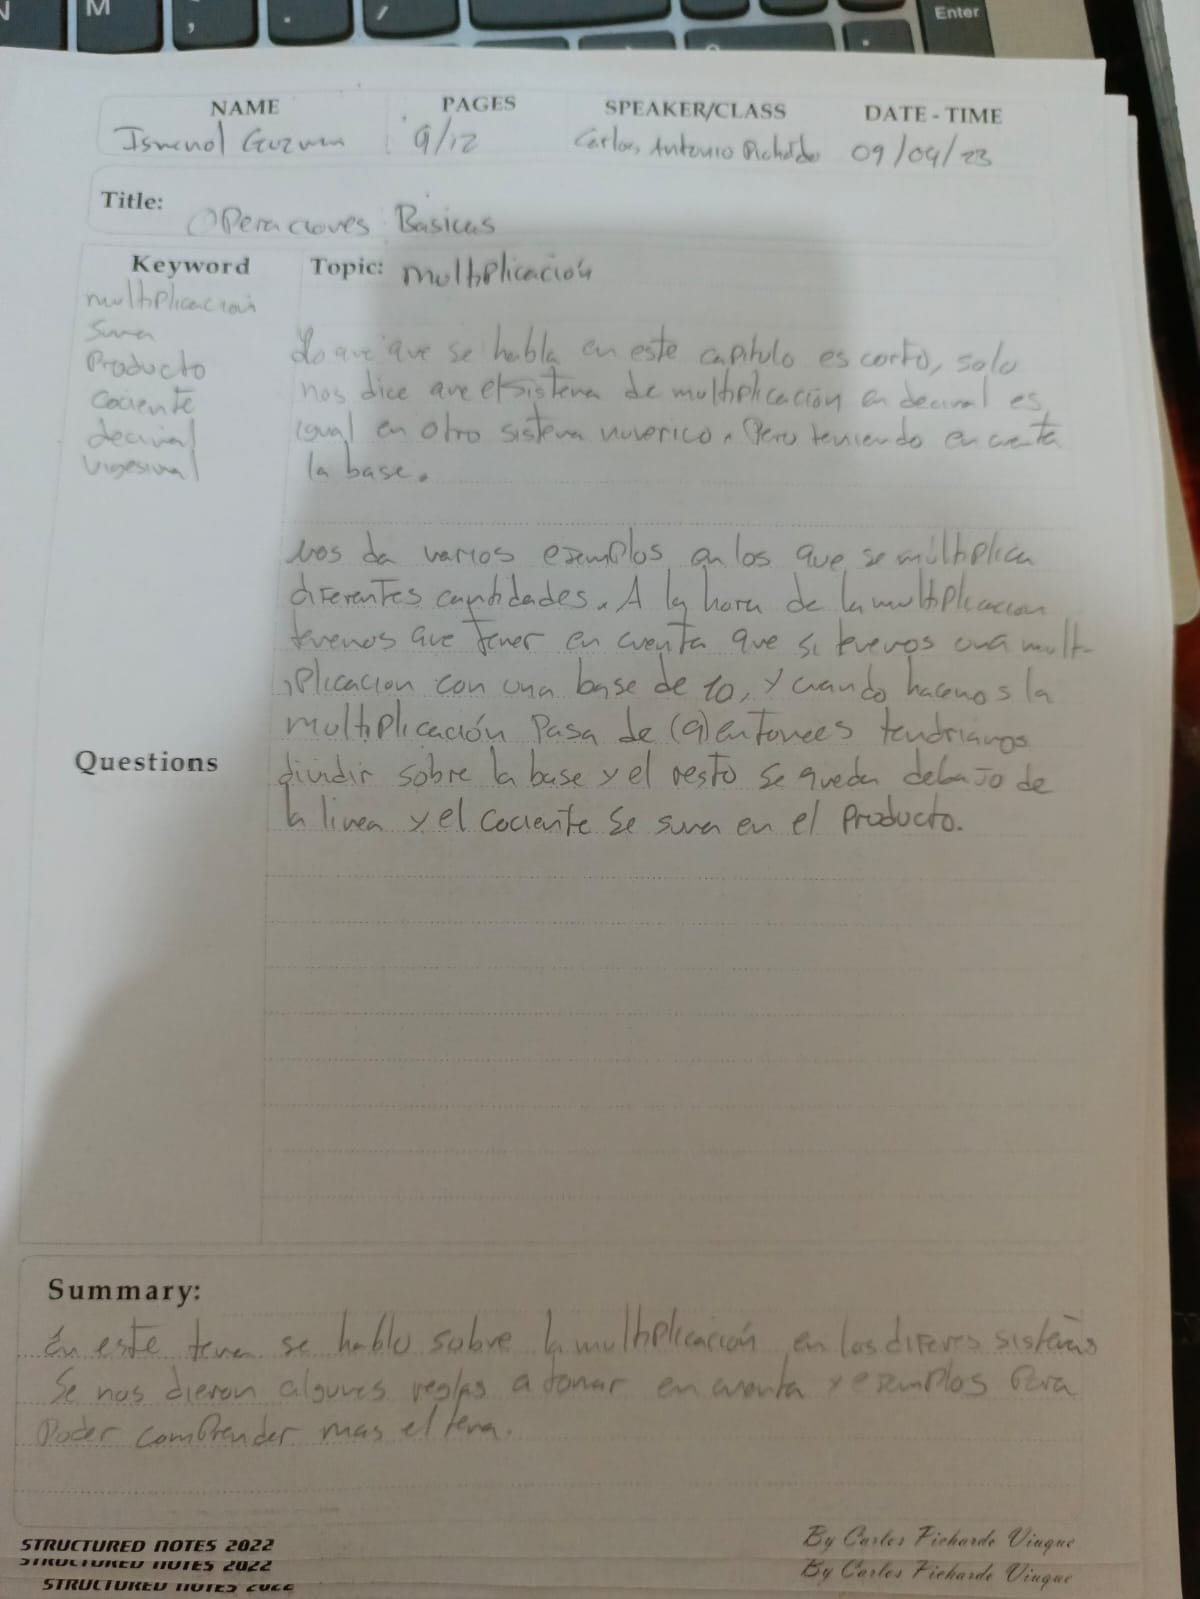 N M , . / Enter
NAME PAGES SPEAKER/CLASS DATE - TIME
Ismenol Guzman 9/12 Carlos Antonio Pichardo 09/04/23
Title: Operaciones Basicas
Keyword Topic: multiplicación
multiplicacion
Suma
Producto
Cociente
decimal
vigesimal
Lo que que se habla en este capitulo es corto, solo
nos dice que el sistema de multiplicación en decimal es
igual en otro sistema numerico. Pero teniendo en cuenta
la base.
Nos da varios ejemplos en los que se multiplica
diferentes cantidades. A la hora de la multiplicacion
tenemos que tener en cuenta que si tenemos una mult-
iplicacion con una base de 10, y cuando hacemos la
multiplicación Pasa de (9) entonces tendriamos
dividir sobre la base y el resto se queda debajo de
la linea y el cociente se suma en el Producto.
Questions
Summary:
En este tema se hablo sobre la multiplicación en los diferes sistemas
Se nos dieron algunes reglas a tomar en cuenta y ejemplos Para
Poder comprender mas el tema.
STRUCTURED NOTES 2022 By Carlos Pichardo Viuque
STRUCTURED NOTES 2022 By Carlos Pichardo Viuque
STRUCTURED NOTES 2022